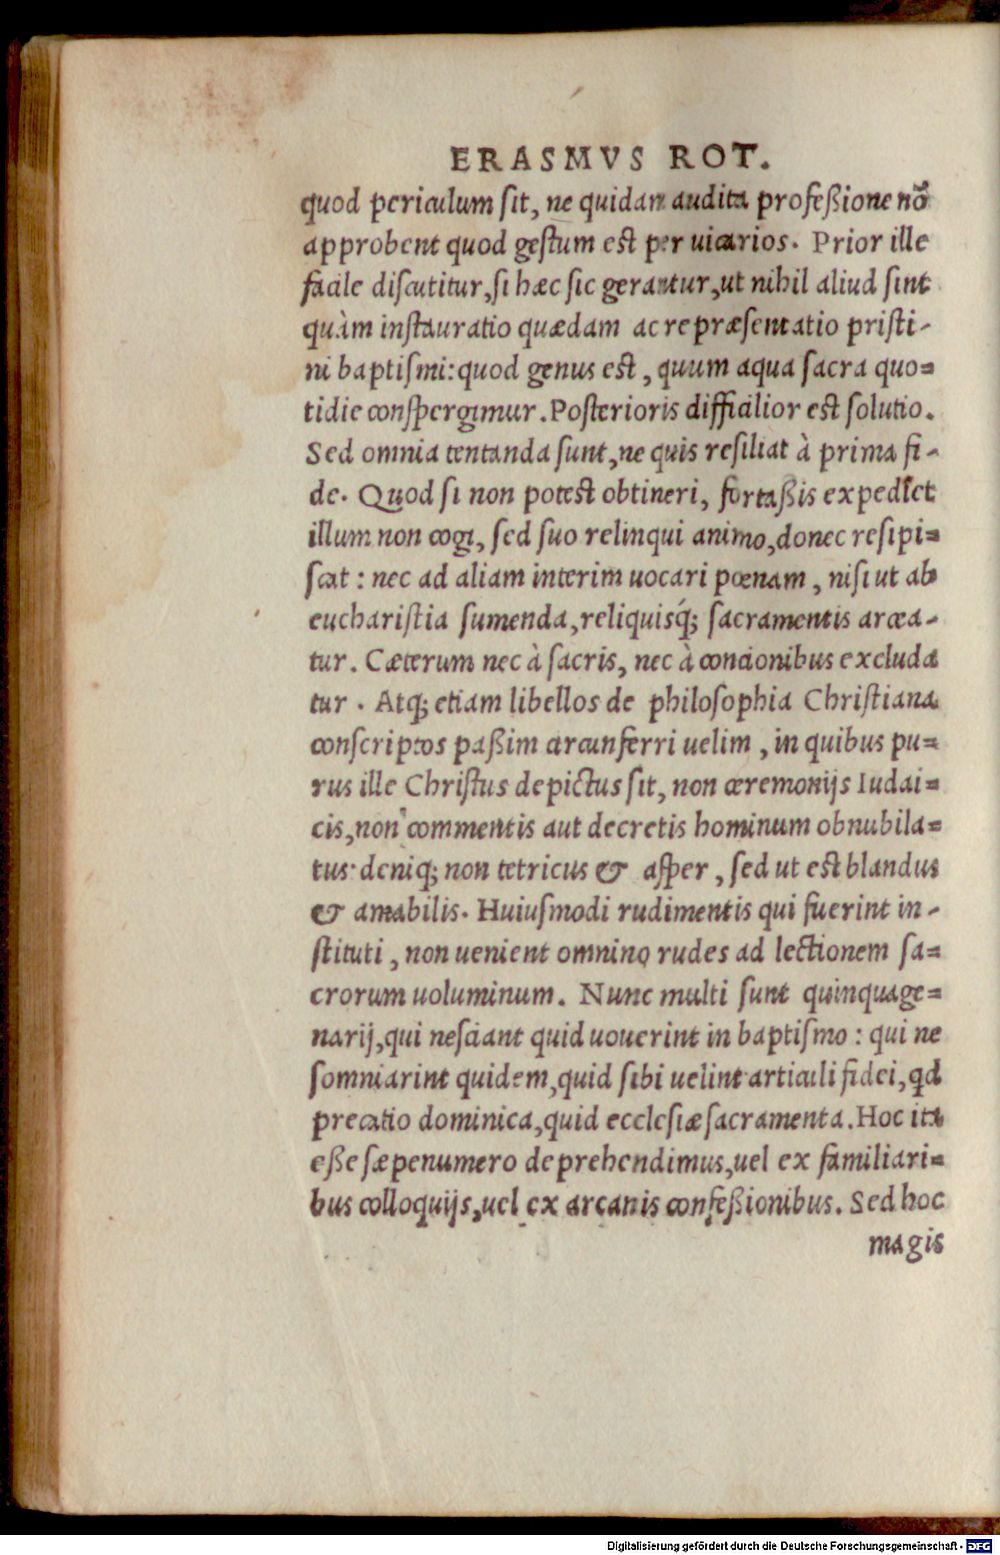 ERASMVS ROT.
quod periculum sit, ne quidam audita profeßione nõ
approbent quod gestum est per uicarios. Prior ille
facile discutitur, si hæc sic gerantur, ut nihil aliud sint
quàm instauratio quædam ac repræsentatio pristi-
ni baptismi: quod genus est, quum aqua sacra quo=
tidie conspergimur. Posterioris difficilior est solutio.
Sed omnia tentanda sunt, ne quis resiliat à prima fi-
de. Quod si non potest obtineri, fortaßis expediet
illum non cogi, sed suo relinqui animo, donec resipi=
scat: nec ad aliam interim uocari pœnam, nisi ut ab
eucharistia sumenda, reliquisq́; sacramentis arcea-
tur. Cæterum nec à sacris, nec à concionibus excluda
tur. Atq; etiam libellos de philosophia Christiana
conscriptos paßim circunferri uelim, in quibus pu=
rus ille Christus depictus sit, non ceremonijs Iudai=
cis, non commentis aut decretis hominum obnubila=
tus: deniq; non tetricus & asper, sed ut est blandus
& amabilis. Huiusmodi rudimentis qui fuerint in-
stituti, non uenient omnino rudes ad lectionem sa=
crorum uoluminum. Nunc multi sunt quinquage=
narij, qui nesciant quid uouerint in baptismo: qui ne
somniarint quidem, quid sibi uelint articuli fidei, qd
precatio dominica, quid ecclesiæ sacramenta. Hoc ita
eße sæpenumero deprehendimus, uel ex familiari=
bus colloquijs, uel ex arcanis confeßionibus. Sed hoc
magis
Digitalisierung gefördert durch die Deutsche Forschungsgemeinschaft - DFG